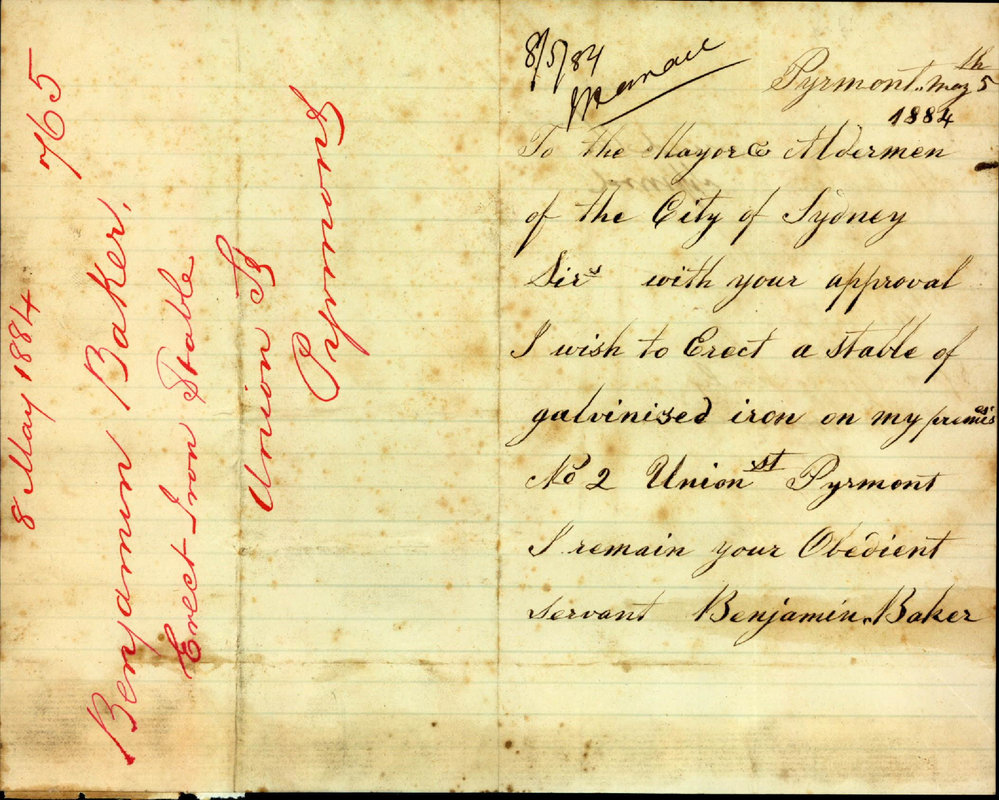 8 May 1884 765
Benjamin Baker,
Erect Iron Stable
Union St
Pyrmont
8/5/84
Pyrmont, May 5th
1884
To the Mayor & Aldermen
of the City of Sydney
Sirs with your approval
I wish to Erect a stable of
galvinised iron on my premises
No 2 Union st Pyrmont
I remain your Obedient
servant Benjamin Baker